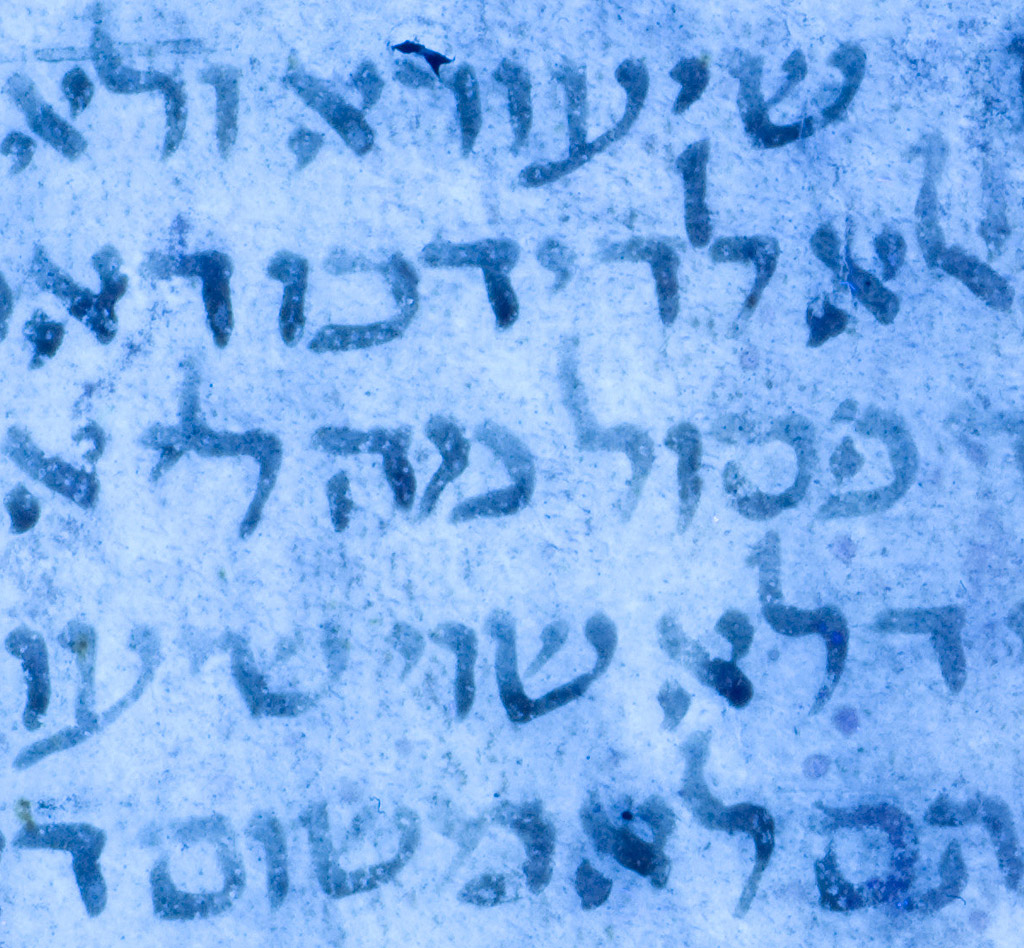 שיעורא ולא
אלא לדידכו דא
פסול מה לא
ד לא שוי שיעו
תם לא משום ד